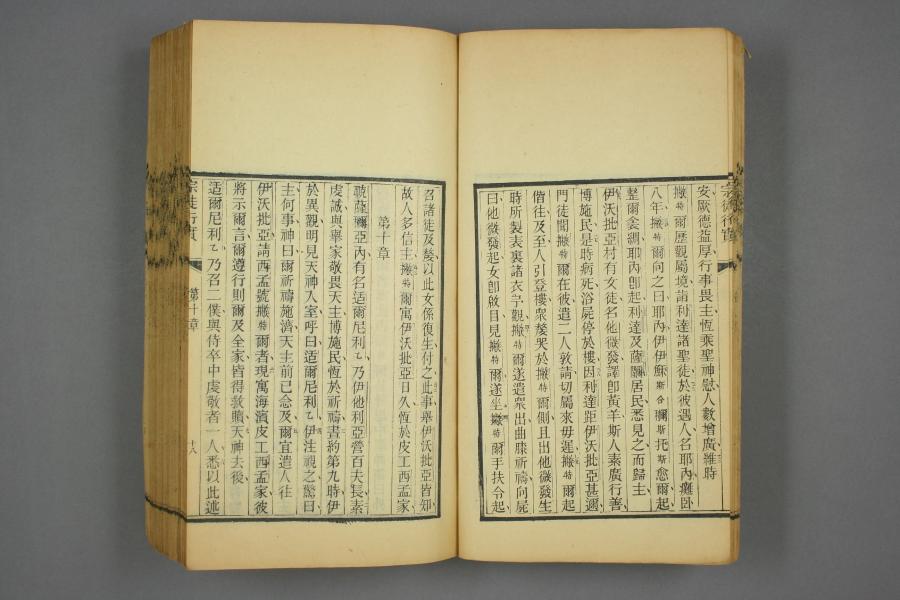 安厥德益厚行事畏主恆乘聖神慰人數增廣維時
撇特爾歷觀屬境詣利達諸聖徒於彼遇人名耶內癱臥
八年撇特爾向之曰耶內伊伊穌斯合爾斯托斯愈爾起
整爾衾裯耶內卽起利達及薩爾居民悉見之而歸主
伊沃批亞村有女徒名他微發譯卽黃羊斯人素廣行善
博施民是時病死浴屍停於樓因利達距伊沃批亞甚邇
門徒聞撇特爾在彼遣二人敦請切屬來毋遲撇特爾起
偕往及至人引登樓衆嫠哭於撇特爾側且出他微發生
時所製表裏諸衣予觀撇特爾遂遣衆出曲膝祈禱向屍
曰他微發起女卽啟目見撇特爾遂坐撇特爾手扶令起
召諸徒及嫠以此女係復生付之此事舉伊沃批亞皆知
故人多信主撇特爾寓伊沃批亞日久恆於皮工西孟家
第十章
薩爾亞內有名适爾尼利乙乃伊他利亞營百夫長素
虔誠與舉家敬畏天主博施民恆於祈禱晝約第九時伊
於異觀明見天神入室呼曰适爾尼利乙伊注視之驚曰
主何事神曰爾祈禱施濟天主前已念及爾宜遣人往
伊沃批亞請西孟號撇特爾者現寓海濱皮工西孟家彼
將示爾言爾遵行則爾及全家皆得救贖天神去後
适爾尼利乙乃召二僕與侍卒中虔敬者一人悉以此述
宗徒行實
第十章
十八